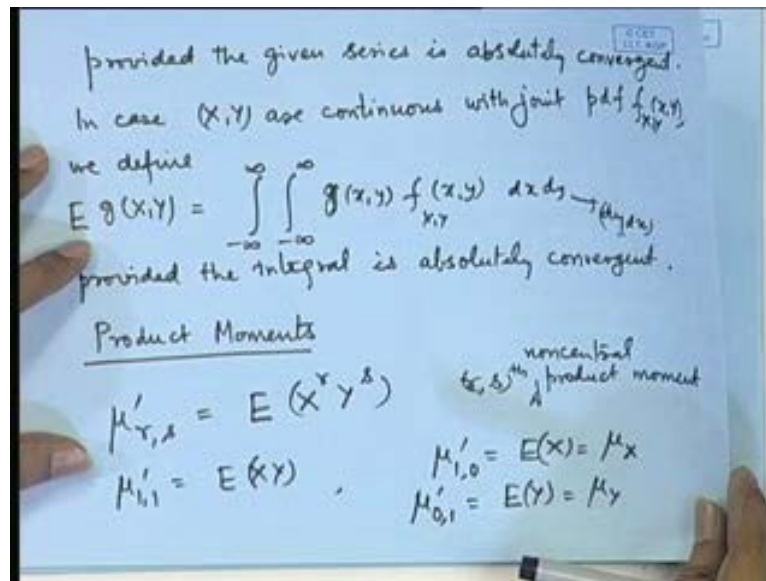 provided the given series is absolutely convergent.
In case (X,Y) are continuous with joint pdf f_{X,Y}(x,y),
we define
E g(X,Y) = ∫_{-∞}^{∞} ∫_{-∞}^{∞} g(x,y) f_{X,Y}(x,y) dx dy → (dy dx)
provided the integral is absolutely convergent.
Product Moments
μ'_{r,s} = E(X^r Y^s) (r,s)^{th} noncentral product moment
μ'_{1,1} = E(XY), μ'_{1,0} = E(X) = μ_X
μ'_{0,1} = E(Y) = μ_Y